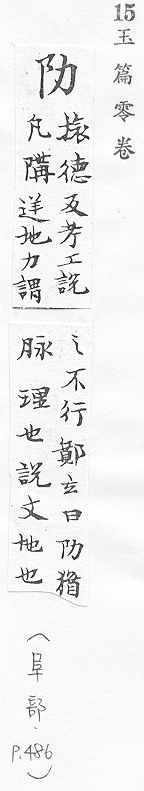 15 玉篇零卷
阞
德反考工說
凡逆地力謂
之不行鄭玄曰阞猶
脉理也說文地也
(阜部、P.486)